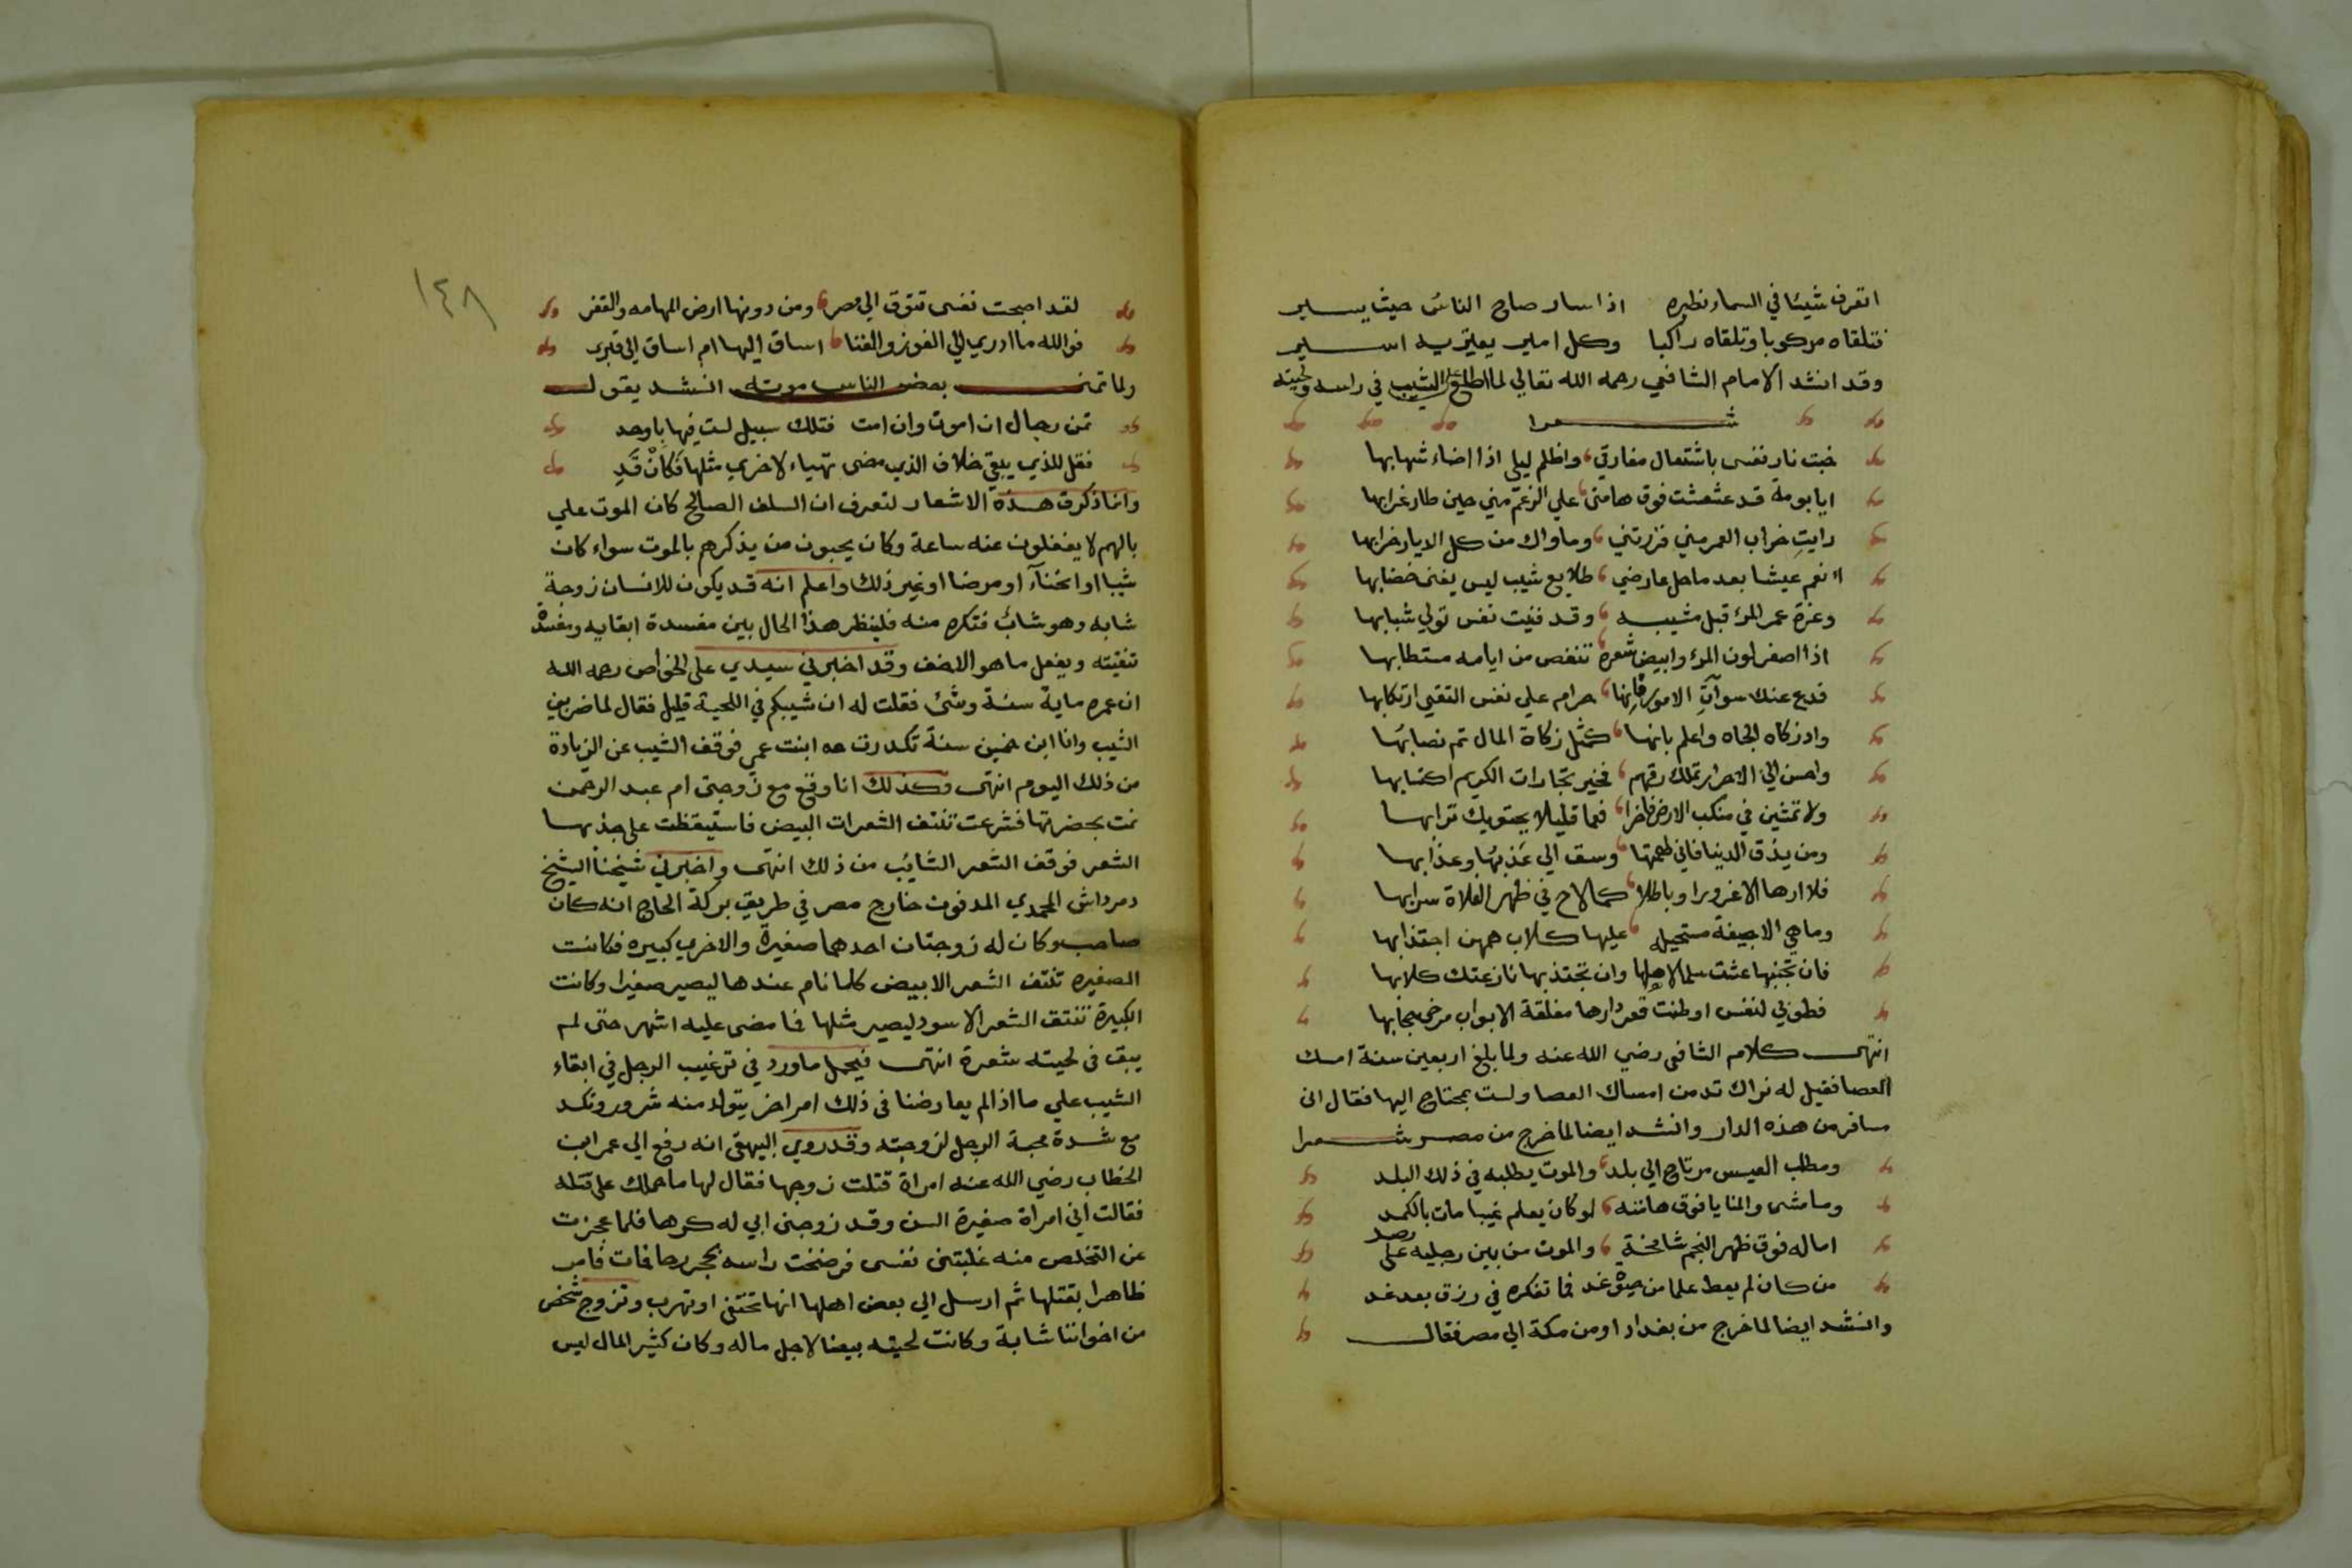 اتعرف شيئا في السماء نظيره اذا سار صاح الناس حيث يسير
فتلقاه مركوبا وتلقاه راكبا وكل امير يعتريه اسير
وقد انشد الامام الشافعي رحمه الله تعالي لما اطلع الشيب في راسه ولحيته
شعرا
خبت نار نفسي باشتعال مفارقي واظلم ليلي اذا اضاء شهابها
ايا بومة قد عششت فوق هامتي علي الرغم مني حين طار غرابها
رايتِ خراب العمر مني فزرتني وماواك من كل الديار خرابها
اانعم عيشا بعد ما حل عارضي طلايع شيب ليس يغني خضابها
وعزة عمر المرء قبل مشيبه وقد فنيت نفس تولي شبابها
اذا اصفر لون المرء وابيض شعره تنغص من ايامه مستطابها
فدع عنك سوآتِ الامور فانها حرام علي نفس التقي ارتكابها
واد زكاه الجاه واعلم بانها كمثل زكاة المال تم نصابها
واحسن الي الاحرار تملك رقهم فخير تجارات الكريم اكتسابها
ولا تمشين في منكب الارض فاخرا فعما قليلا يحتويك ترابها
ومن يذق الدنيا فاني طعمتها وسق الي عَذبُها وعذابها
فلا ارها الا غرورا وباطلا كما لاح في ظهر الفلاة سرابها
وما هي الا جيفة مستحيله عليها كلاب همهن اجتذابها
فان تجتنبها عشت سلما لاهلها وان تجتذبها نازعتك كلابها
فطوبي لنفس اوطنت قعر دارها مغلقة الابواب مرخي حجابها
انتهي كلام الشافعي رضي الله عنه ولما بلغ اربعين سنة امسك
العصا فقيل له نراك تدمن امساك العصا ولست بمحتاج اليها فقال اني
مسافر من هذه الدار وانشد ايضا لما خرج من مصر شعرا
ومطلب العيس مرتاح الي بلد والموت يطلبه في ذلك البلد
وماشي والمنايا فوق هامته لو كان يعلم غيبا مات بالكمد
اماله فوق ظهر النجم شامخة والموت من بين رجليه علي رصد
من كان لم يعط علما من غد فما تفكره في رزق بعد غد
وانشد ايضا لما خرج من بغداد او من مكة الي مصر فقال
١٤٨
لقد اصبحت نفسي تتوق الي مصر ومن دونها ارض المهامه والقفر
فوالله ما ادري الي الفوز والغنا اساق اليها ام اساق الي قبري
ولما تمني بعض الناس موته انشد يقول
تمن رجال ان اموت وان امت فتلك سبيل لست فيها باوحد
فقل للذي يبقي خلاف الذي مضي تهياء لاخري مثلها فَكانْ قَدِ
وانما ذكرت هذه الاشعار لتعرف ان السلف الصالح كان الموت علي
بالهم لا يغفلون عنه ساعة وكان يحبون من يذكرهم بالموت سواء كان
شيبا او انحنآء او مرضا او غير ذلك واعلم انه قد يكون للانسان زوجة
شابه وهو شائب فتكره منه فلينظر هذا الحال بين مفسدة ابقايه ومفسدة
تنقيته ويفعل ما هو الاخف وقد اخبرني سيدي علي الخواص رحمه الله
ان عمره ماية سنة وشئ فقلت له ان شيبكم في اللحية قليل فقال لما ضربني
الشيب وانا ابن خمسين سنة تكدرت ابنت عمي فوقف الشيب عن الزيادة
من ذلك اليوم انتهي وكذلك انا وقع مع زوجتي ام عبد الرحمن
نمت بحضرتها فشرعت تنتف الشعرات البيض فاستيقظت علي جذبها
الشعر فوقف الشعر الشايب من ذلك انتهي واخبرني شيخنا الشيخ
دمرداش المحمدي المدفون خارج مصر في طريق بركة الحاج انه كان
صاحب وكان له زوجتان احدهما صغيرة والاخري كبيره فكانت
الصغيره تنتف الشعر الابيض كلما نام عندها ليصير صغيرا وكانت
الكبيرة تنتف الشعر الاسود ليصير مثلها فما مضي عليه اشهر حتي لم
يبق في لحيته شعرة انتهي فيحمل ما ورد في ترغيب الرجل في ابقاء
الشيب علي ما اذا لم يعارضنا في ذلك امراض يتولد منه شرور ونكد
مع شدة محبة الرجل لزوجته وقد روي البيهقي انه رفع الي عمر ابن
الخطاب رضي الله عنه امراة قتلت زوجها فقال لها ما حملك علي قتله
فقالت اني امراة صغيرة السن وقد زوجني ابي له كرها فلما عجزت
عن التخلص منه غلبتني نفسي فرضخت راسه بحجر رحا فمات فامر
ظاهرا بقتلها ثم ارسل الي بعض اهلها انها تختفي او تهرب وتزوج شخص
من اخواننا شابة وكانت لحيته بيضا لاجل ماله وكان كثير المال ليس